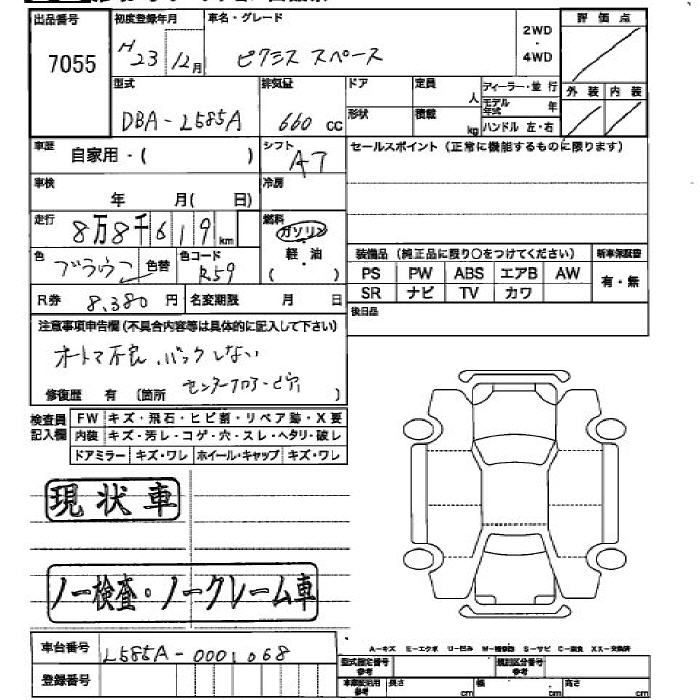 出品番号 初度登録年月 車名・グレード 評価点
7055 H23 12月 ピクシス スペース 2WD・4WD
型式 排気量 ドア 定員 人 ディーラー・並行 外装 内装
DBA-L585A 660cc 形状 積載 kg モデル年式 年 ハンドル 左・右
車歴 自家用・( ) シフト AT セールスポイント(正常に機能するものに限ります)
車検 年 月(日) 冷房
走行 8万8千619km 燃料 ガソリン・軽油・( )
装備品(純正品に限り○をつけてください) 新車保証書
色 ブラウン 色替 色コード R59 PS PW ABS エアB AW 有・無
SR ナビ TV カワ
R券 8,380円 名変期限 月 日 後日品
注意事項申告欄(不具合内容等は具体的に記入して下さい)
オートマ不良、バックしない
センターフロアーピラー
修復歴 有(箇所 )
検査員記入欄 FW キズ・飛石・ヒビ割・リペア跡・X要
内装 キズ・汚レ・コゲ・穴・スレ・ヘタリ・破レ
ドアミラー キズ・ワレ ホイール・キャップ キズ・ワレ
現状車
ノー検査・ノークレーム車
A-キズ E-エクボ U-凹み W-補修跡 S-サビ C-腐食 XX-交換済
車台番号 L585A-0001068
型式指定番号 参考 類別区分番号 参考
登録番号
車庫証明用 参考 長さ cm 幅 cm 高さ cm